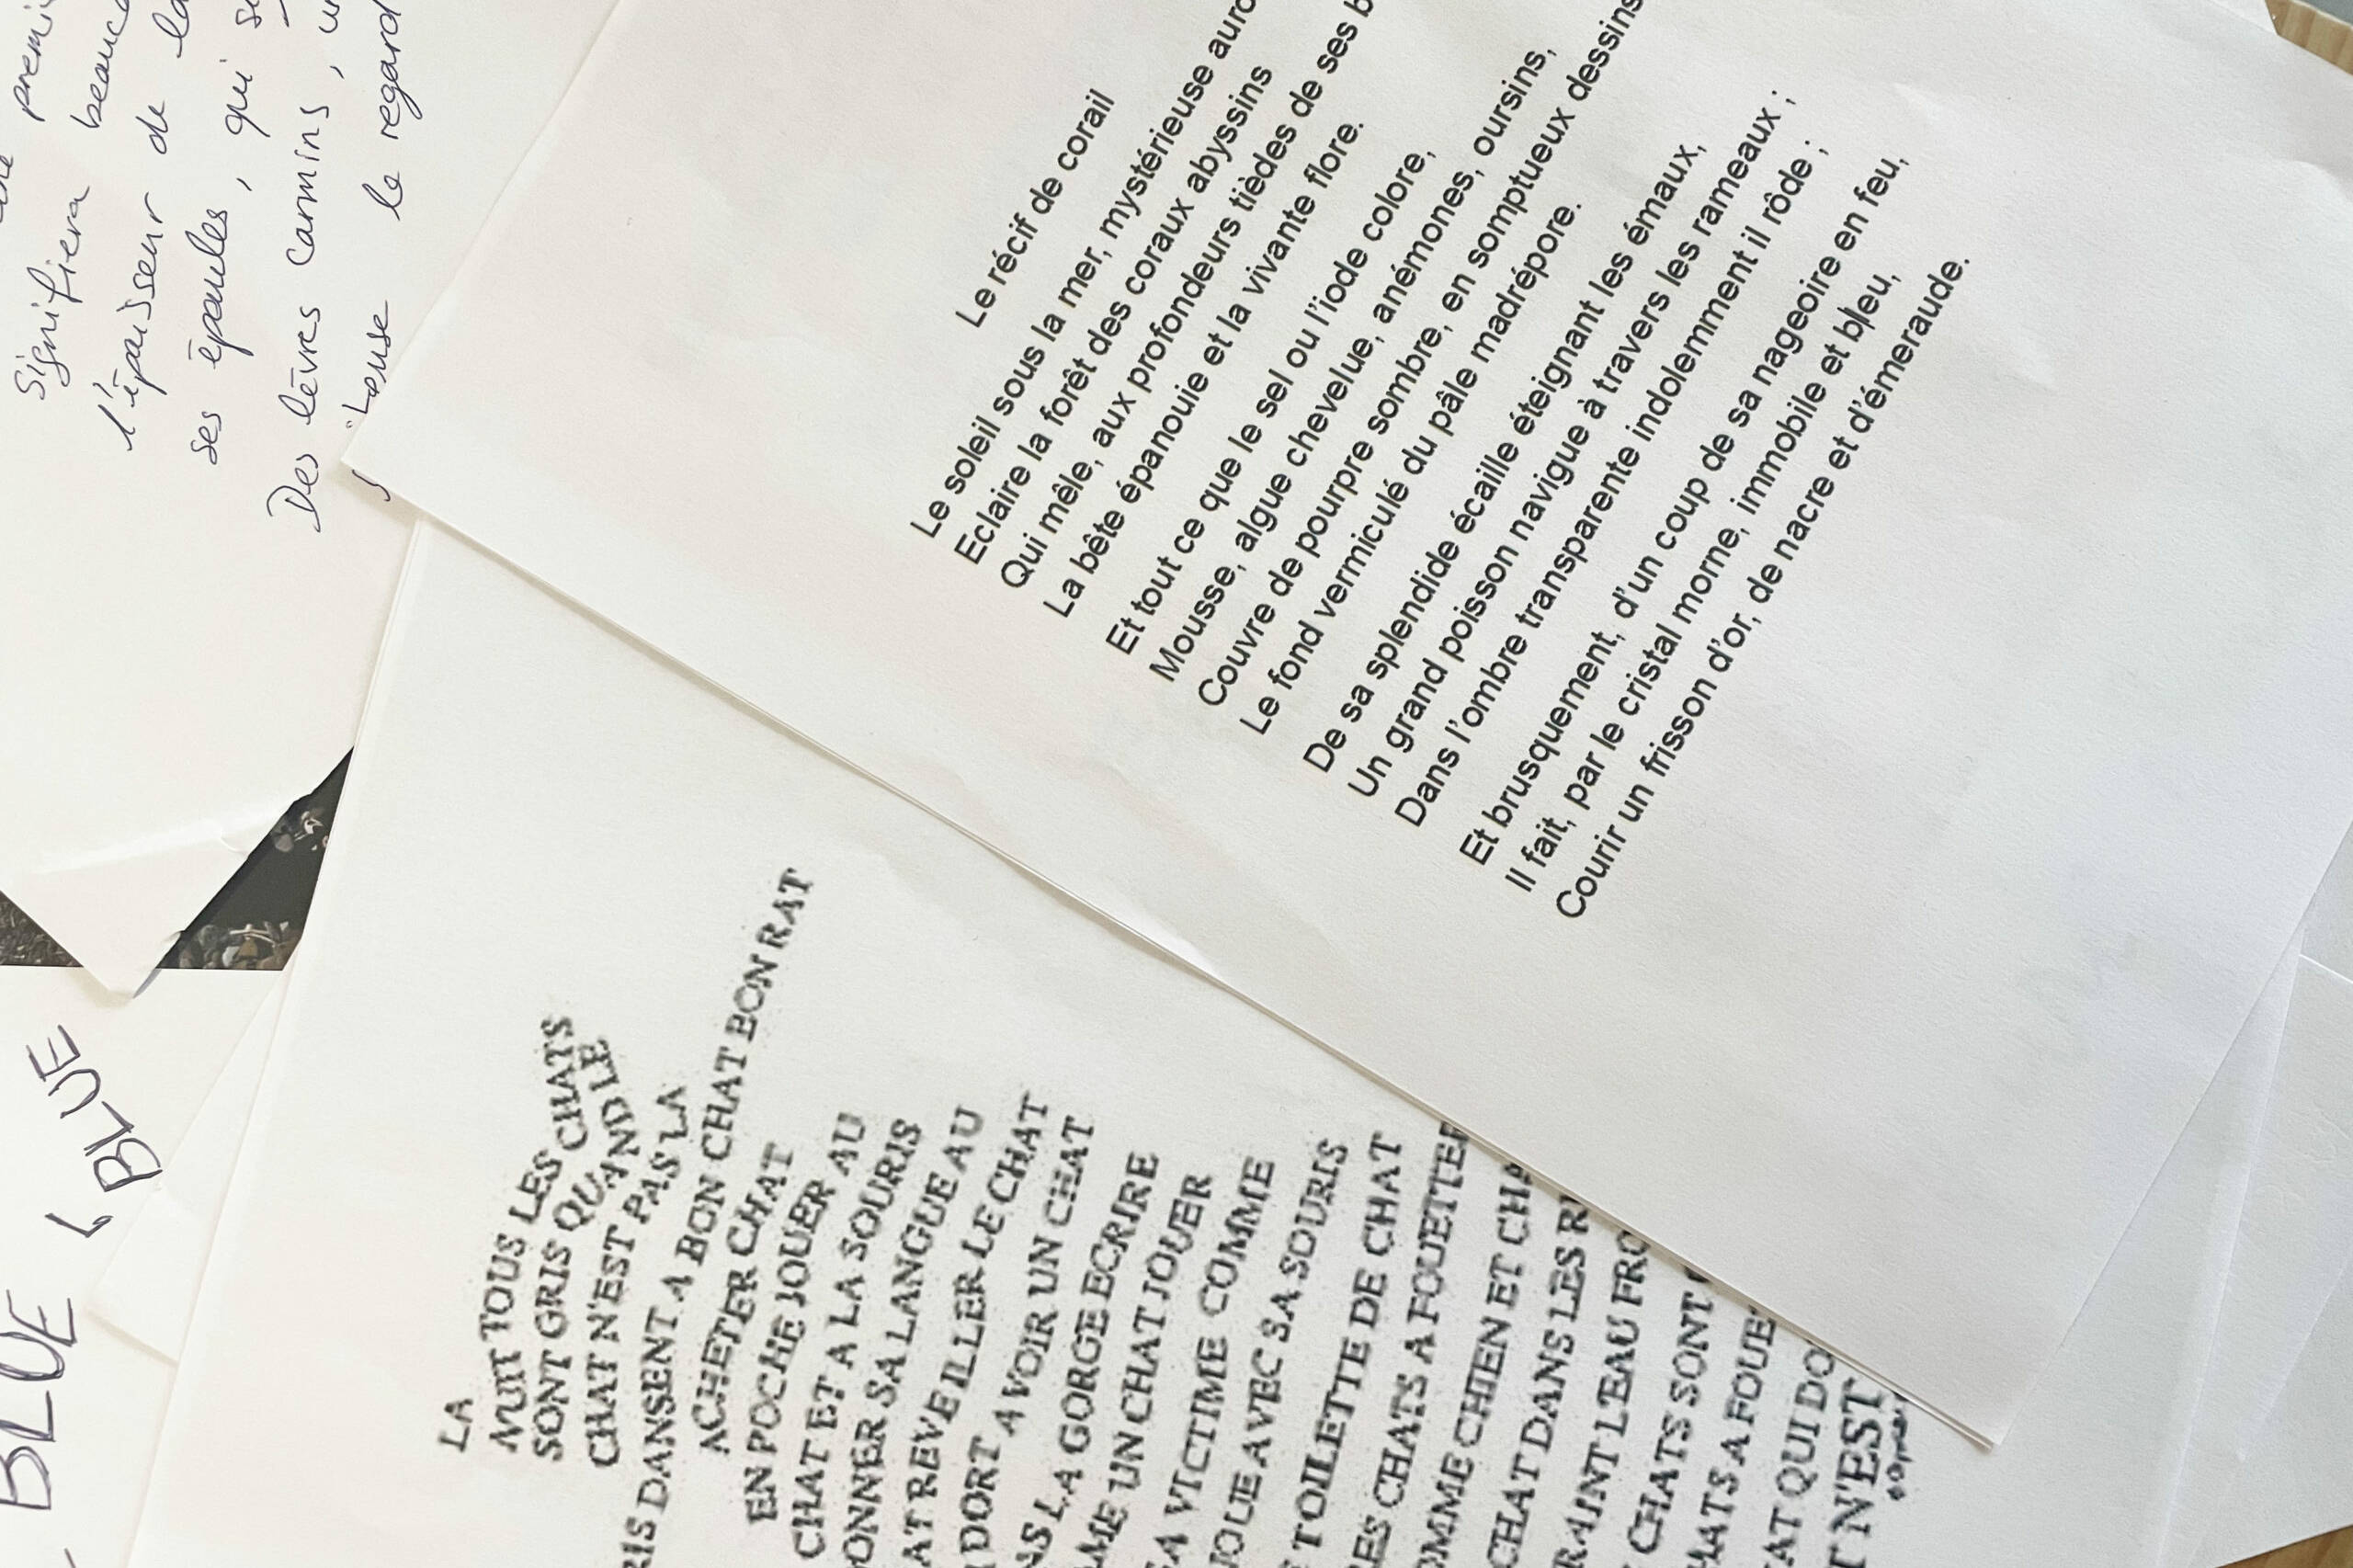 Le récif de corail
Le soleil sous la mer, mystérieuse
Eclaire la forêt des coraux abyssins
Qui mêle, aux profondeurs tièdes de ses
La bête épanouie et la vivante flore.
Et tout ce que le sel ou l'iode colore,
Mousse, algue chevelue, anémones, oursins,
Couvre de pourpre sombre, en somptueux dessins
Le fond vermiculé du pâle madrépore.
De sa splendide écaille éteignant les émaux,
Un grand poisson navigue à travers les rameaux ;
Dans l'ombre transparente indolemment il rôde ;
Et brusquement, d'un coup de sa nageoire en feu,
Il fait, par le cristal morne, immobile et bleu,
Courir un frisson d'or, de nacre et d'émeraude.
LA
NUIT TOUS LES CHATS
SONT GRIS QUAND LE
CHAT N'EST PAS LA
RIS DANSENT A BON CHAT BON RAT
ACHETER CHAT
EN POCHE JOUER AU
CHAT ET A LA SOURIS
ONNER SA LANGUE AU
AT REVEILLER LE CHAT
DORT AVOIR UN CHAT
NS LA GORGE ECRIRE
ME UN CHAT JOUER
A VICTIME COMME
JOUE AVEC SA SOURIS
TOILETTE DE CHAT
ES CHATS A FOUETTER
OMME CHIEN ET CHA
CHAT DANS LES
RAINT L'EAU FRO
CHATS SONT
HATS A FOUE
AT QUI DO
T N'EST
signifiera beauc
l'épaisseur de la
ses épaules, qui
Des lèvres carmins,
le regard
BLUE, BLUE